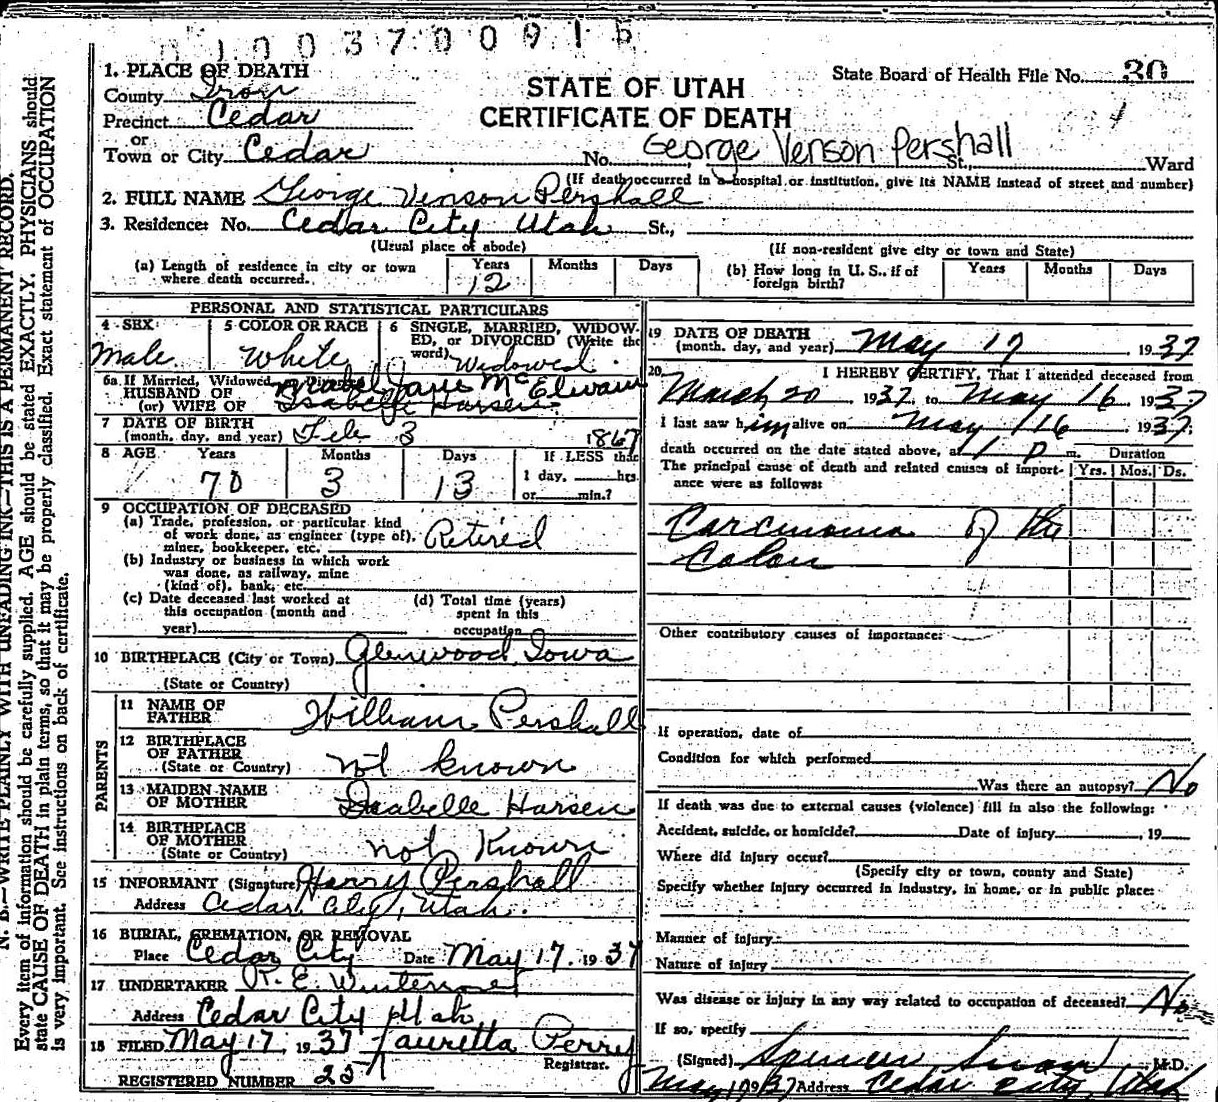 0 1 0 0 3 7 0 0 9 1 6
1. PLACE OF DEATH
County Iron
Precinct Cedar
or
Town or City Cedar
STATE OF UTAH
CERTIFICATE OF DEATH
State Board of Health File No. 30
No. George Venson Pershall St., Ward
(If death occurred in a hospital or institution, give its NAME instead of street and number)
2. FULL NAME George Venson Pershall
3. Residence: No. Cedar City Utah St.,
(Usual place of abode) (If non-resident give city or town and State)
(a) Length of residence in city or town where death occurred. Years 12 Months Days
(b) How long in U. S., if of foreign birth? Years Months Days
PERSONAL AND STATISTICAL PARTICULARS
4 SEX Male
5 COLOR OR RACE White
6 SINGLE, MARRIED, WIDOWED, or DIVORCED (Write the word) Widowed
6a. If Married, Widowed
HUSBAND OF Mabel Jane McElwain
(or) WIFE OF Isabelle Harsen
7 DATE OF BIRTH
(month, day, and year) Feb 3 1867
8 AGE Years 70 Months 3 Days 13 If LESS than 1 day, hrs. or min.?
9 OCCUPATION OF DECEASED
(a) Trade, profession, or particular kind
of work done, as engineer (type of), Retired
miner, bookkeeper, etc.
(b) Industry or business in which work
was done, as railway, mine
(kind of), bank, etc.
(c) Date deceased last worked at
this occupation (month and
year)
(d) Total time (years)
spent in this
occupation
10 BIRTHPLACE (City or Town) Glenwood Iowa
(State or Country)
PARENTS
11 NAME OF FATHER William Pershall
12 BIRTHPLACE OF FATHER
(State or Country) not known
13 MAIDEN NAME OF MOTHER Isabelle Harsen
14 BIRTHPLACE OF MOTHER
(State or Country) not Known
15 INFORMANT (Signature) Harry Pershall
Address Cedar City, Utah.
16 BURIAL, CREMATION, OR REMOVAL
Place Cedar City Date May 17. 1937
17 UNDERTAKER R. E.
Address Cedar City Utah
18 FILED May 17, 1937 Lauretta Perry
Registrar.
REGISTERED NUMBER
19 DATE OF DEATH
(month, day, and year) May 17 1937
20. I HEREBY CERTIFY, That I attended deceased from
March 20 1937, to May 16 1937
I last saw him alive on May 16 1937;
death occurred on the date stated above, at 1 P m. Duration
The principal cause of death and related causes of importance were as follows: Yrs. Mos. Ds.
Carcinoma of the
Colon
Other contributory causes of importance:
If operation, date of
Condition for which performed
Was there an autopsy? No
If death was due to external causes (violence) fill in also the following:
Accident, suicide, or homicide? Date of injury , 19
Where did injury occur?
(Specify city or town, county and State)
Specify whether injury occurred in industry, in home, or in public place:
Manner of injury
Nature of injury
Was disease or injury in any way related to occupation of deceased? No
If so, specify
(Signed) Spencer Snow M.D.
May 17 1937 Address Cedar City, Utah
N. B.—WRITE PLAINLY WITH UNFADING INK—THIS IS A PERMANENT RECORD.
Every item of information should be carefully supplied. AGE should be stated EXACTLY. PHYSICIANS should
state CAUSE OF DEATH in plain terms, so that it may be properly classified. Exact statement of OCCUPATION
is very important. See instructions on back of certificate.